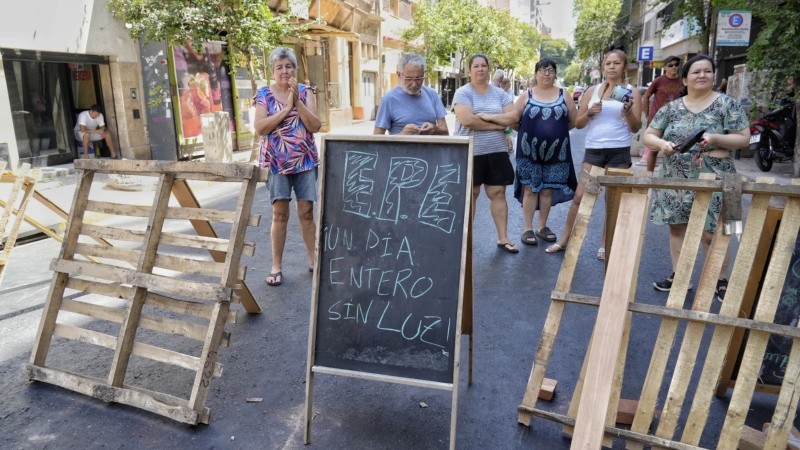 E.P.E
¡UN DIA
ENTERO
SIN LUZ!
E
E